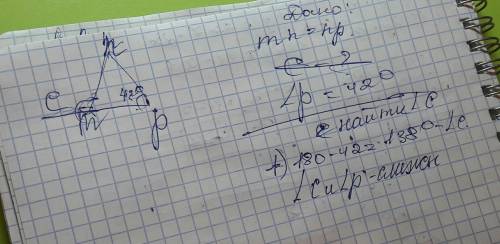 n
e
42°
m
p
Дано:
mn = np
c - ?
∠p = 42°
Найти ∠c
1) 180 - 42 = 138° - ∠c.
∠c и ∠p - смежн